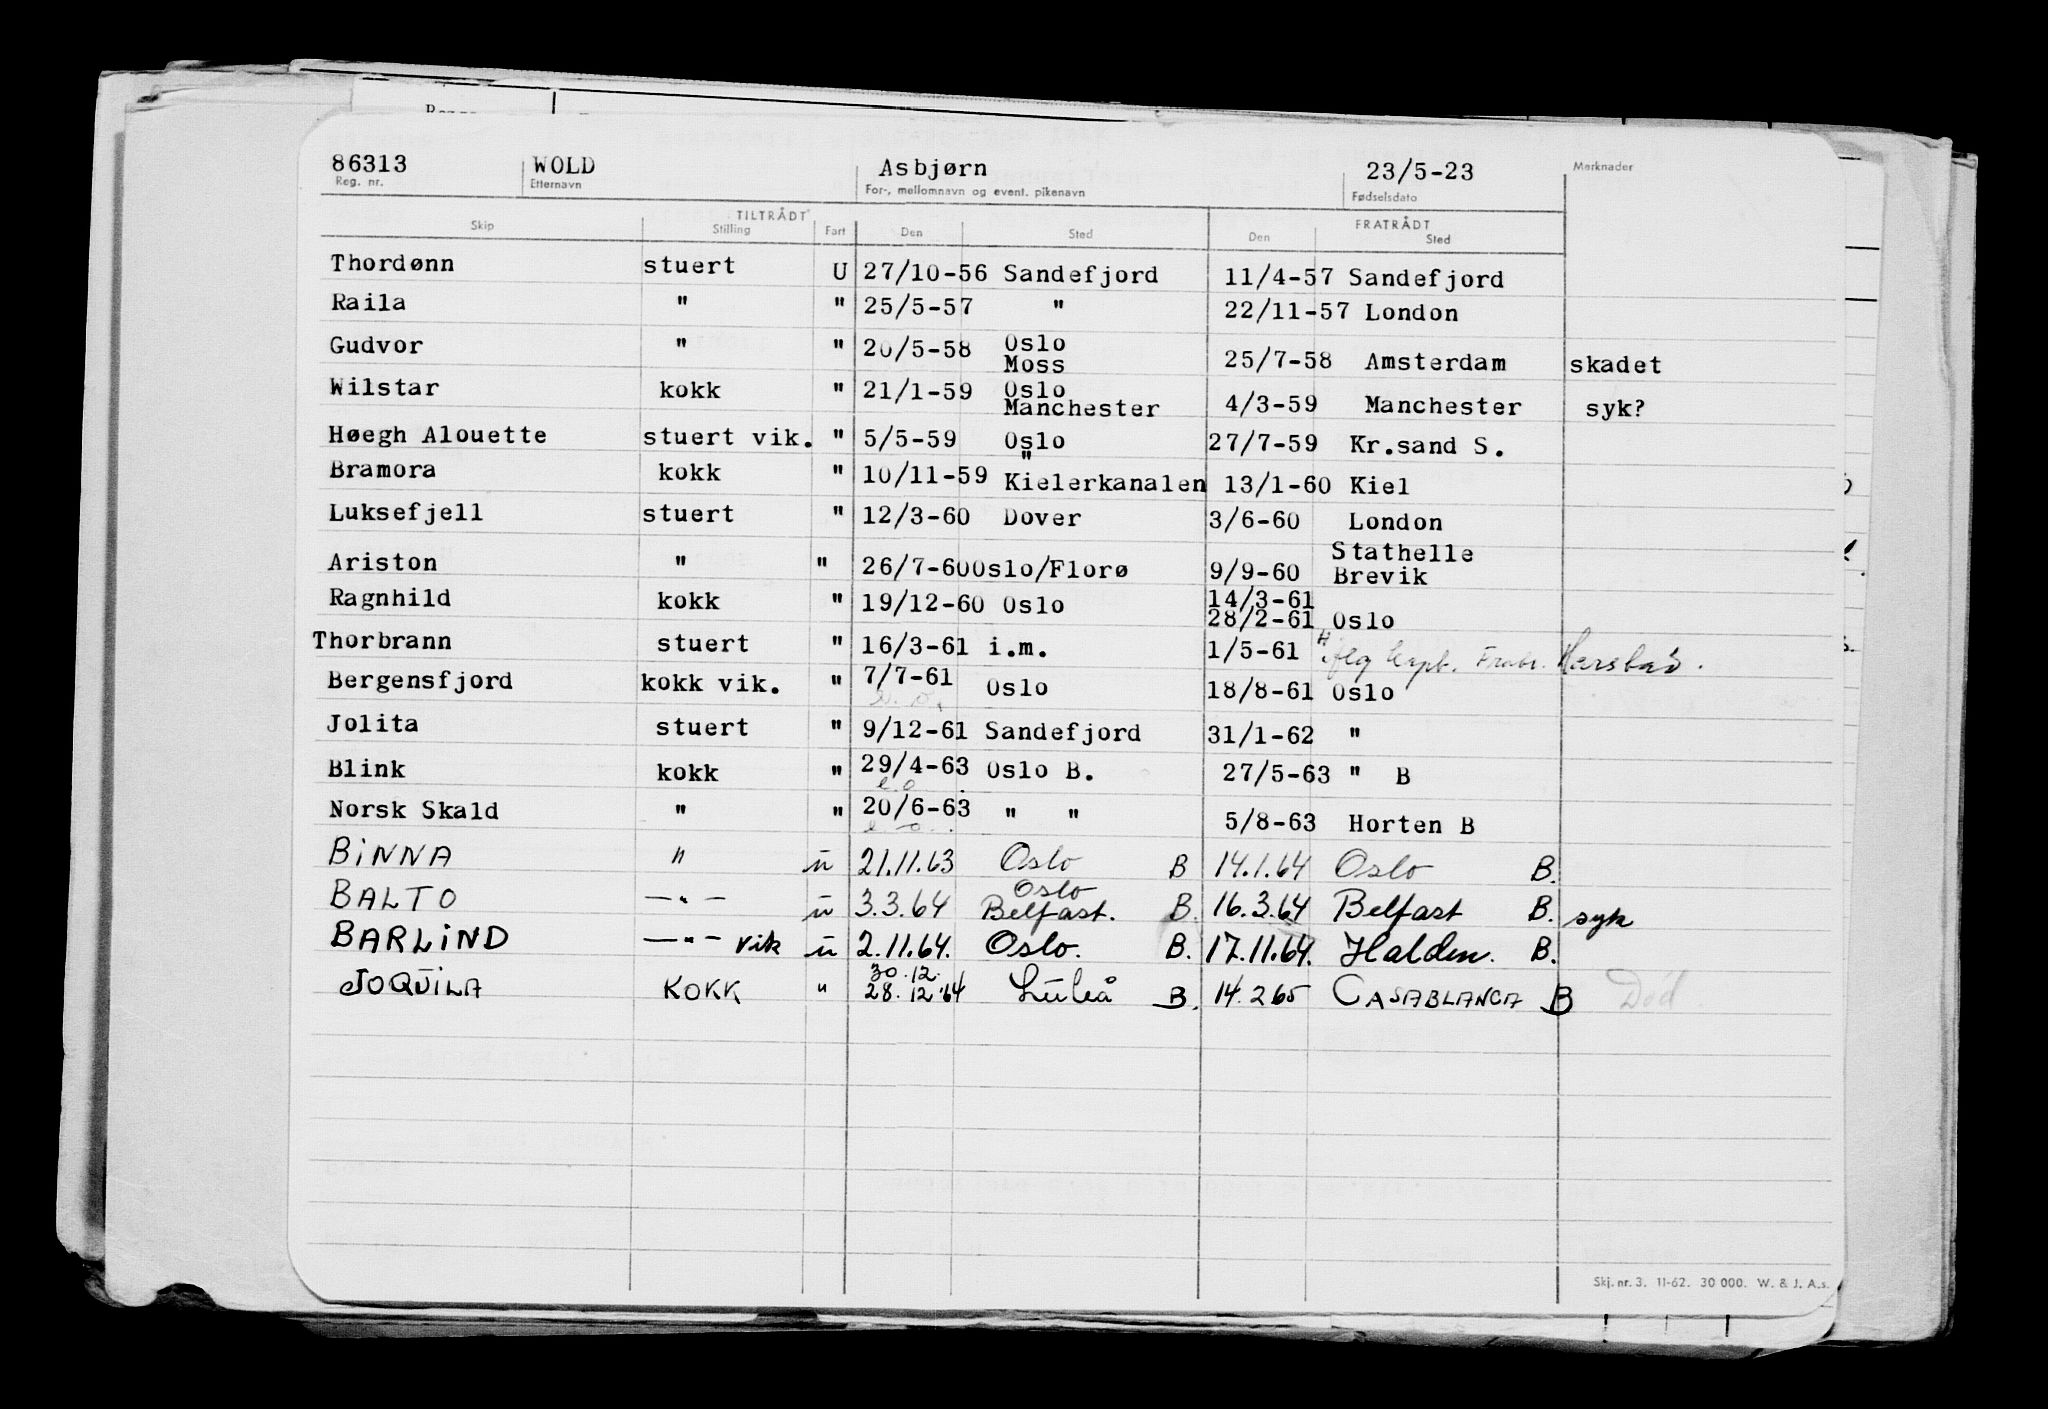 86313 WOLD Asbjørn 23/5-23 Merknader
Reg. nr. Etternavn For-, mellomnavn og event. pikenavn Fødselsdato
TILTRÅDT FRATRÅDT
Skip Stilling Fart Den Sted Den Sted
Thordønn stuert U 27/10-56 Sandefjord 11/4-57 Sandefjord
Raila " " 25/5-57 " 22/11-57 London
Gudvor " " 20/5-58 Oslo Moss 25/7-58 Amsterdam skadet
Wilstar kokk " 21/1-59 Oslo Manchester 4/3-59 Manchester syk?
Høegh Alouette stuert vik. " 5/5-59 Oslo 27/7-59 Kr.sand S.
Bramora kokk " 10/11-59 " Kielerkanalen 13/1-60 Kiel
Luksefjell stuert " 12/3-60 Dover 3/6-60 London
Ariston " " 26/7-60 Oslo/Florø 9/9-60 Stathelle Brevik
Ragnhild kokk " 19/12-60 Oslo 14/3-61 28/2-61 Oslo
Thorbrann stuert " 16/3-61 i.m. 1/5-61 Harstad.
Bergensfjord kokk vik. " 7/7-61 Oslo 18/8-61 Oslo
Jolita stuert " 9/12-61 Sandefjord 31/1-62 "
Blink kokk " 29/4-63 Oslo B. 27/5-63 " B
e.o.
Norsk Skald " " 20/6-63 " " 5/8-63 Horten B
e.o.
BINNA " u 21.11.63 Oslo B 14.1.64 Oslo B.
BALTO —"— u 3.3.64 Oslo Belfast. B. 16.3.64 Belfast B. syk
BARLIND —"— vik u 2.11.64. Oslo. B. 17.11.64. Halden. B.
JOQUILA KOKK " 30.12. 28.12.64 Luleå B. 14.2 65 CASABLANCA B Død
Skj. nr. 3. 11-62. 30 000. W. & J. A.s.